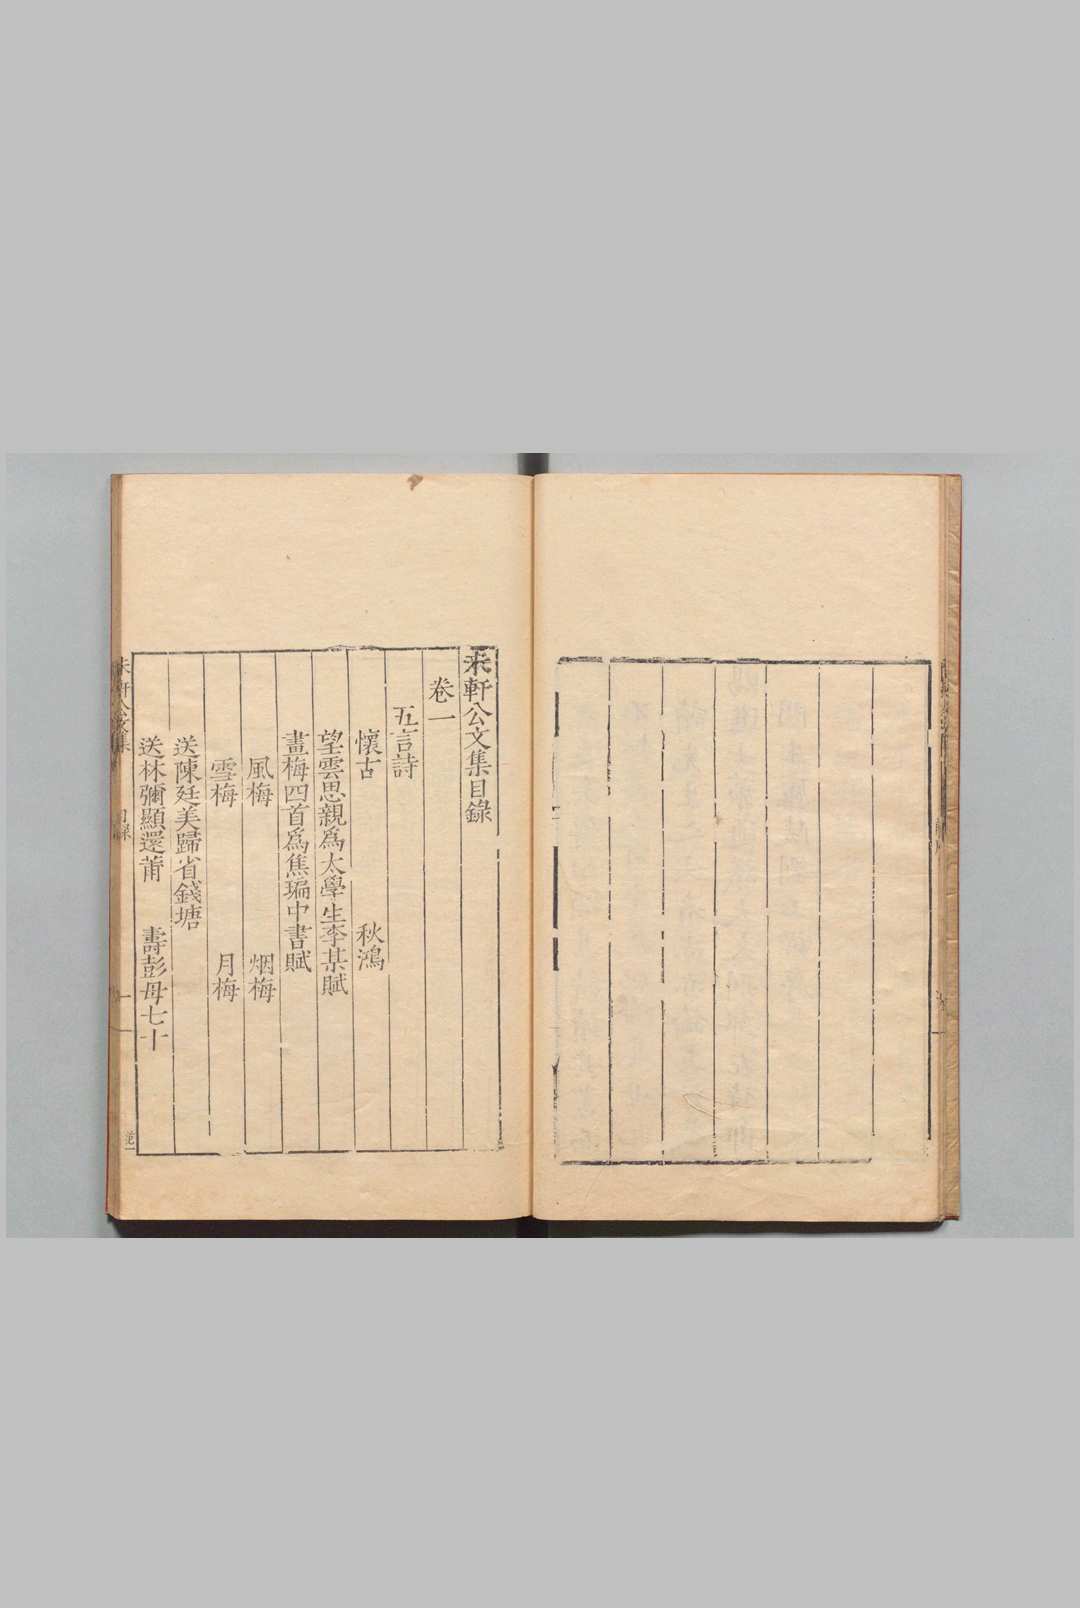 未軒公文集目錄
卷一
五言詩
懷古 秋鴻
望雲思親爲太學生李某賦
畫梅四首爲焦瑞中書賦
風梅 烟梅
雪梅 月梅
送陳廷美歸省錢塘
送林彌顯還莆 壽彭母七十
未軒公文集 目錄 一